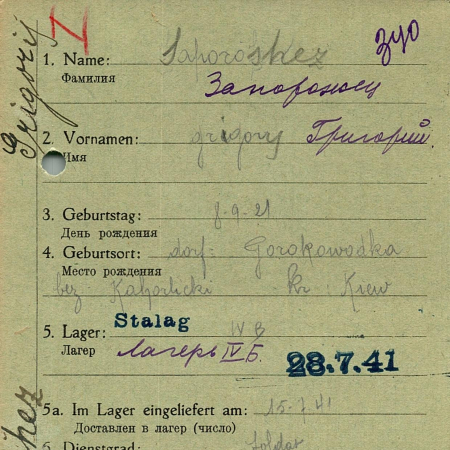 Grigorij
Z
зуо
1. Name: Saporoshez
Фамилия
Запорожец
2. Vornamen: Grigory Григорий
Имя
3. Geburtstag: 8.9.21
День рождения
4. Geburtsort: dorf: Gorokowodka
Место рождения
bez Kaharlicki Kr: Kiew
5. Lager: Stalag IV B
Лагерь лагерь IV Б. 28.7.41
5a. Im Lager eingeliefert am: 15.7.41
Доставлен в лагер (число)
6. Dienstgrad: Soldat
hez